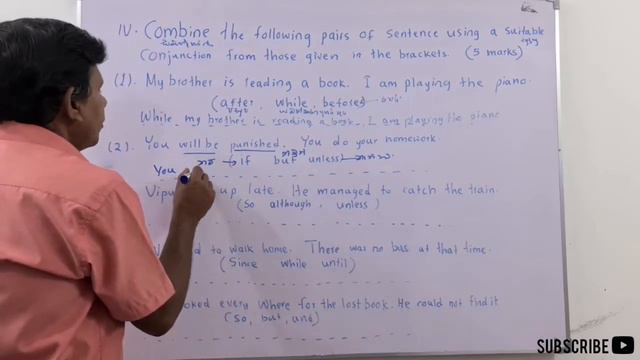 IV. Combine the following pairs of sentence using a suitable
conjunction from those given in the brackets. (5 marks)
(1). My brother is reading a book. I am playing the piano.
(after, while, before)
While my brother is reading a book, I am playing the piano
(2). You will be punished. You do your homework.
If but unless
You
Vipu up late. He managed to catch the train.
(So although, unless)
to walk home. There was no bus at that time.
(Since while until)
oked every where for the lost book. He could not find it
(so, but, and)
SUBSCRIBE